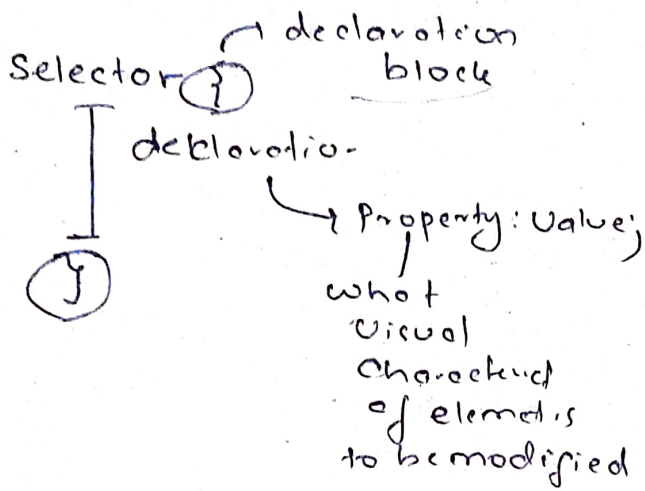 declaration
block
Selector {
declaratio-
Property: Value;
}
what
visual
of elemet is
to be modified